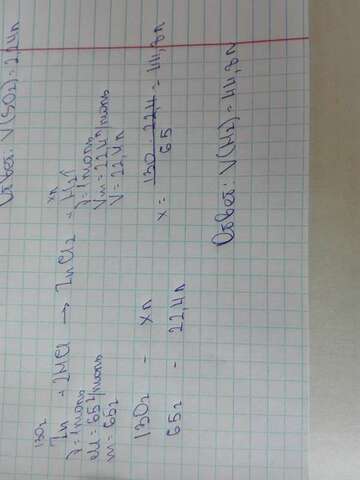 Ответ: V(SO₂) = 2,24л
130г xл
Zn + 2HCl → ZnCl₂ + H₂↑
ν = 1моль ν = 1моль
M = 65г/моль Vm = 22,4л/моль
m = 65г V = 22,4л
130г - xл
65г - 22,4л
x = 130 · 22,4 / 65 = 44,8л
Ответ: V(H₂) = 44,8л